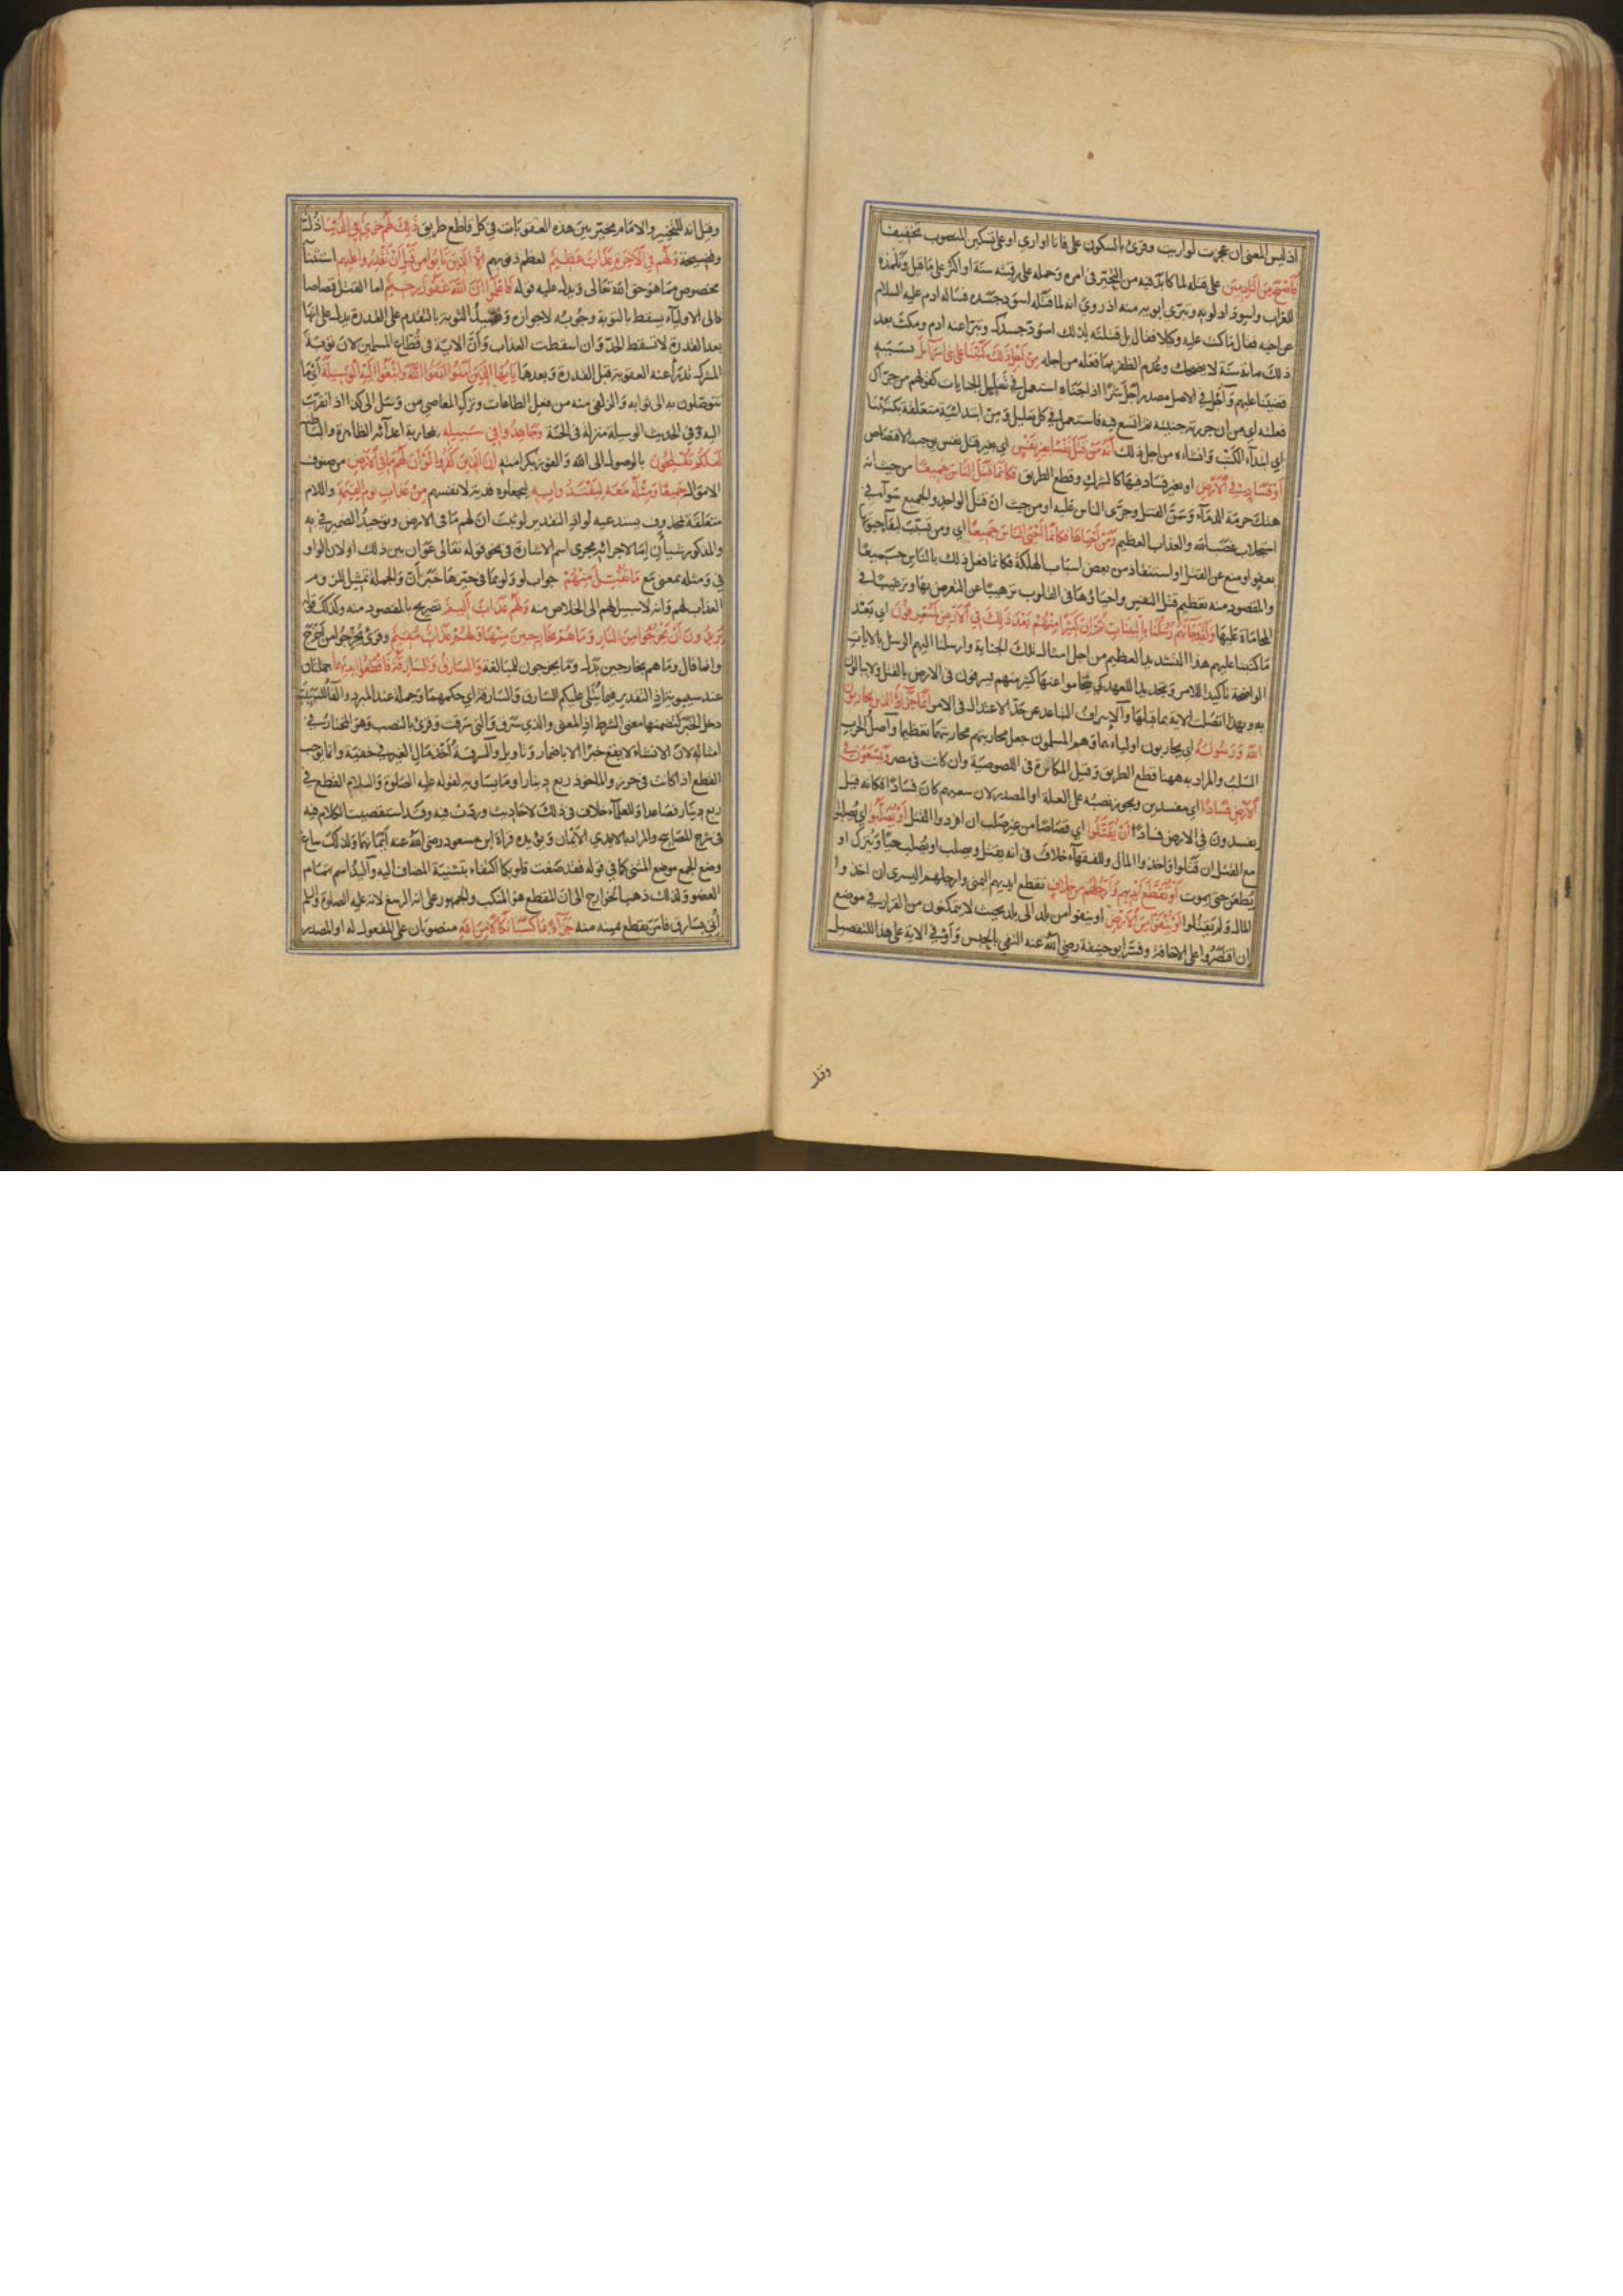 اذ ليس المعنى ان عجزت لواريت وقرئ بالسكون على فانا اواري او على تسكين المنصوب تخفيفا
فَاَصْبَحَ مِنَ النَّادِمِينَ على قتله لما كابد فيه من التحير في امره وحمله على رقبته سنة او اكثر على ما قيل وتلمذه
للغراب واسوداد لونه وتبري ابويه منه اذ روي انه لما قتله اسود جسده فساله ادم عليه السلام
عن اخيه فقال ما كنت عليه وكيلا فقال بل قتلته لذلك اسود جسدك وتبرا عنه ادم ومكث بعد
ذلك مائة سنة لا يضحك وعدم الظفر بما فعله من اجله مِنْ اَجْلِ ذٰلِكَ كَتَبْنَا عَلٰى بَنِي اِسْرَائِيلَ بسببه
قضينا عليهم وأجل في الاصل مصدر أجل شرا اذا جناه استعمل في تعليل الجنايات كقولهم من جراك
فعلته اي من ان جررته جنيته ثم اتسع فيه فاستعمل في كل تعليل ومن ابتدائية متعلقة بكتبنا
اي ابتداء الكتب وانشاءه من اجل ذلك اَنَّهُ مَنْ قَتَلَ نَفْسًا بِغَيْرِ نَفْسٍ اي بغير قتل نفس يوجب الاقتصاص
اَوْ فَسَادٍ فِي الْاَرْضِ او بغير فساد فيها كالشرك وقطع الطريق فَكَاَنَّمَا قَتَلَ النَّاسَ جَمِيعًا من حيث انه
هتك حرمة الدماء وسن القتل وجرى الناس عليه او من حيث ان قتل الواحد والجميع سواء في
استجلاب غضب الله والعذاب العظيم وَمَنْ اَحْيَاهَا فَكَاَنَّمَا اَحْيَى النَّاسَ جَمِيعًا اي ومن تسبب لبقاء حيوتها
بعفو او منع عن القتل او استنقاذ من بعض اسباب الهلكة فكانما فعل ذلك بالناس جميعا
والمقصود منه تعظيم قتل النفس واحياؤها في القلوب ترهيبا عن التعرض لها وترغيبا في
المحاماة عليها وَلَقَدْ جَاءَتْهُمْ رُسُلُنَا بِالْبَيِّنَاتِ ثُمَّ اِنَّ كَثِيرًا مِنْهُمْ بَعْدَ ذٰلِكَ فِي الْاَرْضِ لَمُسْرِفُونَ اي بعد
ما كتبنا عليهم هذا التشديد العظيم من اجل امثال تلك الجناية وارسلنا اليهم الرسل بالايات
الواضحة تأكيدا للامر وتجديدا للعهد كي يتحاموا عنها كثير منهم يسرفون في الارض بالقتل ولا يبالون
به وبهذا اتصلت الاية بما قبلها والاسراف التباعد عن حد الاعتدال في الامر اِنَّمَا جَزَاءُ الَّذِينَ يُحَارِبُونَ
اللهَ وَرَسُولَهُ اي يحاربون اولياءهما وهم المسلمون جعل محاربتهم محاربتهما تعظيما واصل الحرب
السلب والمراد به ههنا قطع الطريق وقيل المكابرة في اللصوصية وان كانت في مصر وَيَسْعَوْنَ فِي
الْاَرْضِ فَسَادًا اي مفسدين ويجوز نصبه على العلة او المصدر لان سعيهم كان فسادا فكانه قيل
يفسدون في الارض فسادا اَنْ يُقَتَّلُوا اي قصاصا من غير صلب ان افردوا القتل اَوْ يُصَلَّبُوا اي يصلبوا
مع القتل ان قتلوا واخذوا المال وللفقهاء خلاف في انه يقتل ويصلب او يصلب حيا ويترك او
يطعن حتى يموت اَوْ تُقَطَّعَ اَيْدِيهِمْ وَاَرْجُلُهُمْ مِنْ خِلَافٍ تقطع ايديهم اليمنى وارجلهم اليسرى ان اخذوا
المال ولم يقتلوا اَوْ يُنْفَوْا مِنَ الْاَرْضِ او ينفوا من بلد الى بلد بحيث لا يتمكنون من القرار في موضع
ان اقتصروا على الاخافة وفسر ابو حنيفة رضي الله عنه النفي بالحبس وأو في الاية على هذا للتفصيل
وقيل
وقيل انه للتخيير والامام مخير بين هذه العقوبات في كل قاطع طريق ذٰلِكَ لَهُمْ خِزْيٌ فِي الدُّنْيَا ذل
وفضيحة وَلَهُمْ فِي الْاٰخِرَةِ عَذَابٌ عَظِيمٌ لعظم ذنوبهم اِلَّا الَّذِينَ تَابُوا مِنْ قَبْلِ اَنْ تَقْدِرُوا عَلَيْهِمْ استثناء
مخصوص بما هو حق الله تعالى ويدل عليه قوله فَاعْلَمُوا اَنَّ اللهَ غَفُورٌ رَحِيمٌ اما القتل قصاصا
فالى الاولياء يسقط بالتوبة وجوبه لا جوازه وتقييد التوبة بالتقدم على القدرة يدل على انها
بعد القدرة لا تسقط الحد وان اسقطت العذاب وأن الاية في قطاع المسلمين لان توبة
المشرك تدرأ عنه العقوبة قبل القدرة وبعدها يَا اَيُّهَا الَّذِينَ اٰمَنُوا اتَّقُوا اللهَ وَابْتَغُوا اِلَيْهِ الْوَسِيلَةَ اي ما
تتوصلون به الى ثوابه والزلفى منه من فعل الطاعات وترك المعاصي من وسل الى كذا اذا تقرب
اليه وفي الحديث الوسيلة منزلة في الجنة وَجَاهِدُوا فِي سَبِيلِهِ بمحاربة اعدائه الظاهرة والباطنة
لَعَلَّكُمْ تُفْلِحُونَ بالوصول الى الله والفوز بكرامته اِنَّ الَّذِينَ كَفَرُوا لَوْ اَنَّ لَهُمْ مَا فِي الْاَرْضِ من صنوف
الاموال جَمِيعًا وَمِثْلَهُ مَعَهُ لِيَفْتَدُوا بِهِ ليجعلوه فدية لانفسهم مِنْ عَذَابِ يَوْمِ الْقِيٰمَةِ واللام
متعلقة بمحذوف يستدعيه لو اذ التقدير لو ثبت ان لهم ما في الارض وتوحيد الضمير في به
والمذكور شيئان اما لاجرائه مجرى اسم الاشارة في نحو قوله تعالى عوان بين ذلك او لان الواو
في ومثله بمعنى مع مَا تُقُبِّلَ مِنْهُمْ جواب لو ولو بما في حيزها خبر أن والجملة تمثيل للزوم
العذاب لهم وانه لا سبيل لهم الى الخلاص منه وَلَهُمْ عَذَابٌ اَلِيمٌ تصريح بالمقصود منه وكذلك قوله
يُرِيدُونَ اَنْ يَخْرُجُوا مِنَ النَّارِ وَمَا هُمْ بِخَارِجِينَ مِنْهَا وَلَهُمْ عَذَابٌ مُقِيمٌ وقرئ يُخْرَجُوا من اخرج
وانما قال وما هم بخارجين بدل وما يخرجون للمبالغة وَالسَّارِقُ وَالسَّارِقَةُ فَاقْطَعُوا اَيْدِيَهُمَا جملتان
عند سيبويه اذ التقدير فيما يتلى عليكم السارق والسارقة اي حكمهما وجملة عند المبرد والفاء للسببية
دخل الخبر لتضمنها معنى الشرط اذ المعنى والذي سرق والتي سرقت وقرئ بالنصب وهو المختار في
امثاله لان الانشاء لا يقع خبرا الا باضمار وتاويل والسرقة أخذ مال الغير في خفية وانما توجب
القطع اذا كانت في حرز والماخوذ ربع دينار او ما يساويه لقوله عليه الصلوة والسلام القطع في
ربع دينار فصاعدا وللعلماء خلاف في ذلك لاحاديث وردت فيه وقد استقصيت الكلام فيه
في شرح المصابيح والمراد بالايدي الايمان ويؤيده قراءة ابن مسعود رضي الله عنه ايمانهما ولذلك ساغ
وضع الجمع موضع المثنى كما في قوله فقد صغت قلوبكما اكتفاء بتثنية المضاف اليه واليد اسم لتمام
العضو ولذلك ذهب الخوارج الى ان المقطع هو المنكب والجمهور على انه الرسغ لانه عليه الصلوة والسلم
اتي بسارق فامر بقطع يمينه منه جَزَاءً بِمَا كَسَبَا نَكَالًا مِنَ اللهِ منصوبان على المفعول له او المصدر